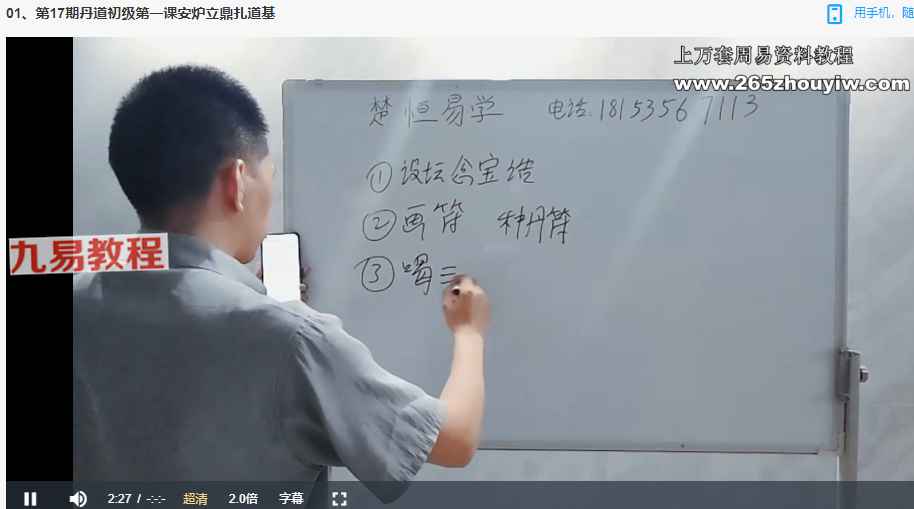 01、第17期丹道初级第一课安炉立鼎扎道基
用手机，随
上万套周易资料教程
www.265zhouyiw.com
楚恒易学 电话.18153567113
①设坛念宝诰
②画符 种丹符
③喝三
九易教程
2:27 / -:-:- 超清 2.0倍 字幕